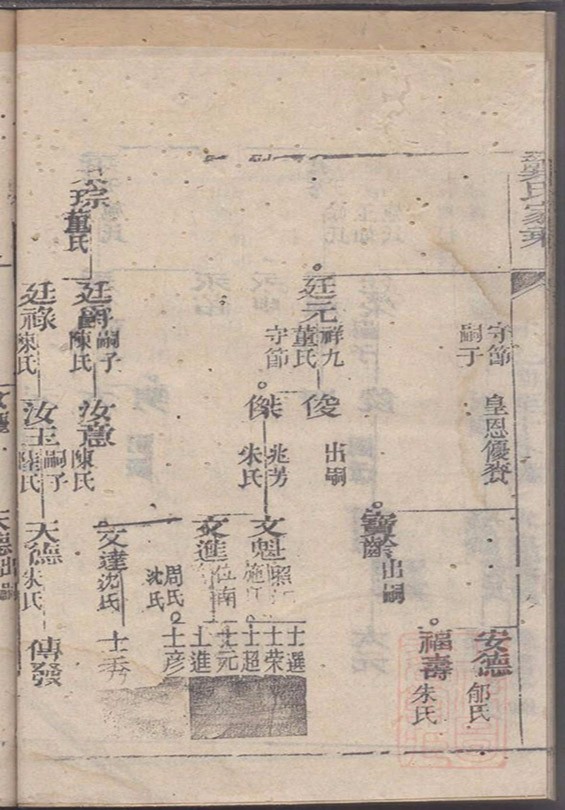 氏家乘
守節
嗣子
皇恩優賚
安德
郁氏
福壽
朱氏
出嗣
廷元
祥九
董氏
守節
俊
出嗣
傑
兆芳
朱氏
文魁
施氏
士選
士榮
士超
文進
位南
周氏
沈氏
士元
士進
士彥
文達
沈氏
士秀
琮
董氏
廷爵
嗣子
陳氏
汝意
陳氏
廷祿
陳氏
汝玉
嗣子
陸氏
天德
朱氏
傳發
天德
出嗣